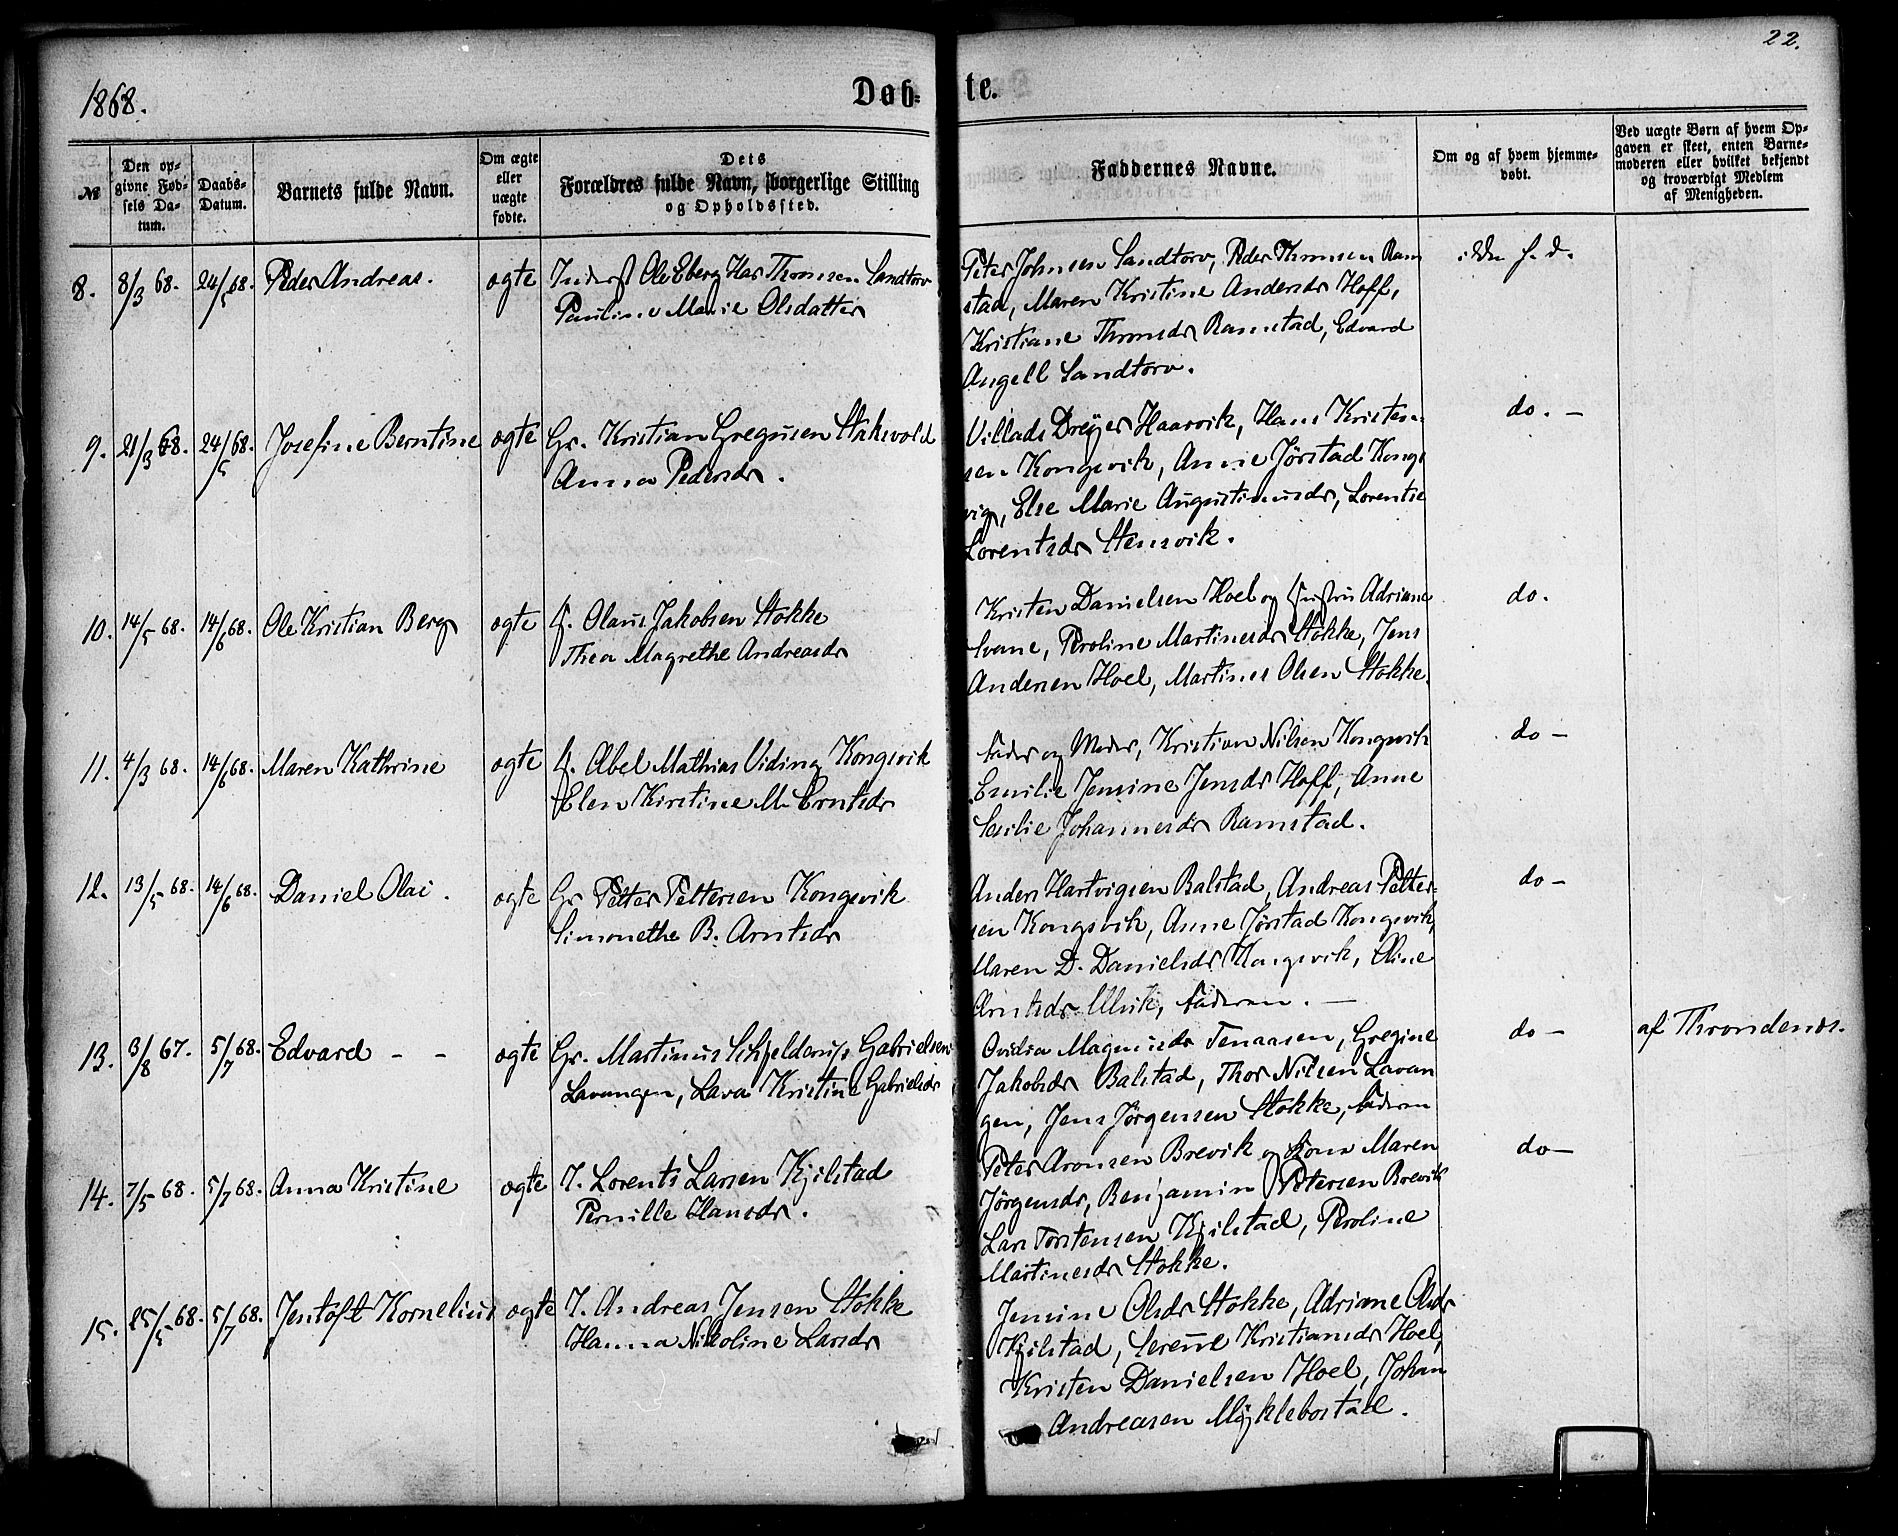 22.
1868.
Døb-
te.
№
Den op-
givne Fød-
sels Da-
tum.
Daabs-
Datum.
Barnets fulde Navn.
Om ægte
eller
uægte
fødte.
Dets
Forældres fulde Navn, borgerlige Stilling
og Opholdssted.
Faddernes Navne.
Om og af hvem hjemme-
døbt.
Ved uægte Børn af hvem Op-
gaven er skeet, enten Barne-
moderen eller hvilket bekjendt
og troværdigt Medlem
af Menigheden.
8. 8/3 68. 24/5 68. Peder Andreas. ægte Inderst Ole Eberg Has Thomsen Sandtorv
Pauline Marie Olsdatter
Peter Johnsen Sandtorv, Peder Thomsen Ram
stad, Maren Kristine Andersdr Hoff,
Kristiane Thomsdr Ramstad, Edvard
Angell Sandtorv.
ikke h. d.
9. 21/3 68. 24/5 68. Josefine Berntine ægte Gr. Kristian Gregusen Stakvold
Anna Pedersdr.
Villads Dreyer Haarvik, Hans Kristen-
sen Kongsvik, Anne Jørstad Kongs
vig, Else Marie Augustinusdr, Lorentse
Lorentsdr Stensvik.
do. -
10. 14/5 68. 14/6 68. Ole Kristian Berg ægte G. Olaus Jakobsen Stokke
Thea Magrethe Andreasdr
Kristen Danielsen Hoel og Hustru Adriane
Ivane, Peroline Martinesdr Stokke, Jens
Andersen Hoel, Martines Olsen Stokke.
do.
11. 4/3 68. 14/6 68. Maren Kathrine ægte G. Abel Mathias Viding Kongsvik
Elen Kirstine M. Erntsdr
Fader og Moder, Kristian Nilsen Kongsvik
Emilie Jemine Jensdr Hoff, Anne
Cesilie Johannesdr Ramstad.
do -
12. 13/5 68. 14/6 68. Daniel Olai. ægte Gr Petter Pettersen Kongsvik
Simonethe B. Arntsdr
Anders Hartvigsen Balstad, Andreas Petter-
sen Kongsvik, Anne Jørstad Kongsvik,
Maren D. Danielsdr Kongsvik, Oline
Arntsdr Ulvik, Faderen. -
do -
13. 3/8 67. 5/7 68. Edvard - - ægte Gr. Martinus Schjelderup Gabrielsen
Lavangen, Lava Kristine Gabrielsdr
Ovidia Magnusdr Tenaasen, Gregine
Jakobsdr Balstad, Thor Nilsen Lavan
gen, Jens Jørgensen Stokke, Faderen
do -
af Throndenæs.
14. 7/5 68. 5/7 68. Anna Kristine ægte I. Lorents Larsen Kjilstad
Pernille Hansdr.
Peter Aronsen Brevik og Kona Maren
Jørgensdr, Benjamin Petersen Brevik
Lars Torstensen Kjilstad, Peroline
Martinesdr Stokke.
do -
15. 25/5 68. 5/7 68. Jentoft Kornelius ægte I. Andreas Jensen Stokke
Hanna Nikoline Larsdr
Jemine Olsdr Stokke, Adriane Olsdr
Kjilstad, Serene Kristiansdr Hoel,
Kristen Danielsen Hoel, Johan
Andreasen Myklebostad.